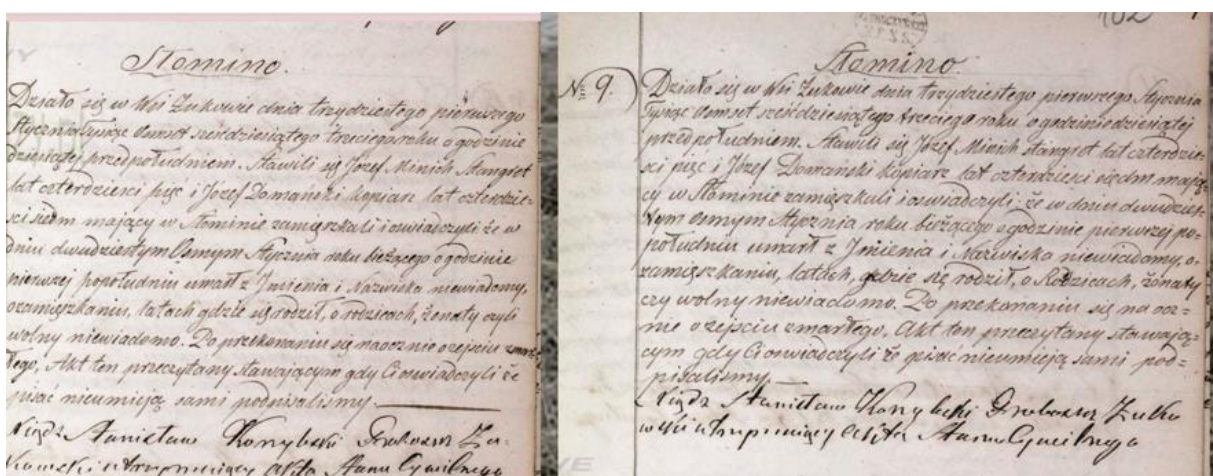 Słomino.
Działo się w Wsi Żukowie dnia trzydziestego pierwszego
Stycznia Tysiąc Osmset sześćdziesiątego trzeciego roku o godzinie
dziesiątej przed południem. Stawili się Jozef Minich Stangret
lat czterdziesci pięc i Jozef Domański kopiarz lat czterdzie-
sci siedm mający w Słominie zamięszkali i oswiadczyli że w
dniu dwudziestym Osmym Stycznia roku bieżącego o godzinie
pierwszej popołudniu umarł z Imienia i Nazwiska niewiadomy,
o zamięszkaniu, latach gdzie się rodził, o rodzicach, żonaty czyli
wolny niewiadomo. Po przekonaniu się naocznie o zejsciu zmar=
łego, Akt ten przeczytany stawającym gdy Ci oswiadczyli że
pisać nieumieją sami podpisalismy.
Xiądz Stanisław Proboszcz Żu-
kowski utrzymujący Akta Stanu Cywilnego
102
Słomino.
N 9.
Działo się w Wsi Żukowie dnia trzydziestego pierwszego Stycznia
Tysiąc Osmset sześćdziesiątego trzeciego roku o godzinie dziesiątej
przed południem. Stawili się Jozef Minich stangret lat czterdzie=
sci pięc i Jozef Domański kopiarz lat czterdziesci siedm mają=
cy w Słominie zamięszkali i oswiadczyli; że w dniu dwudzies=
tym Osmym Stycznia roku bieżącego o godzinie pierwszej po=
południu umarł z Imienia i Nazwiska niewiadomy, o
zamięszkaniu, latach, gdzie się rodził, o Rodzicach, żonaty
czy wolny niewiadomo. Po przekonaniu się na ocz=
nie o zejsciu zmarłego, Akt ten przeczytany stawają=
cym gdy Ci oswiadczyli że pisać nieumieją sami pod=
pisalismy.
Xiądz Stanisław Proboszcz Żuko
wski utrzymujący Akta Stanu Cywilnego